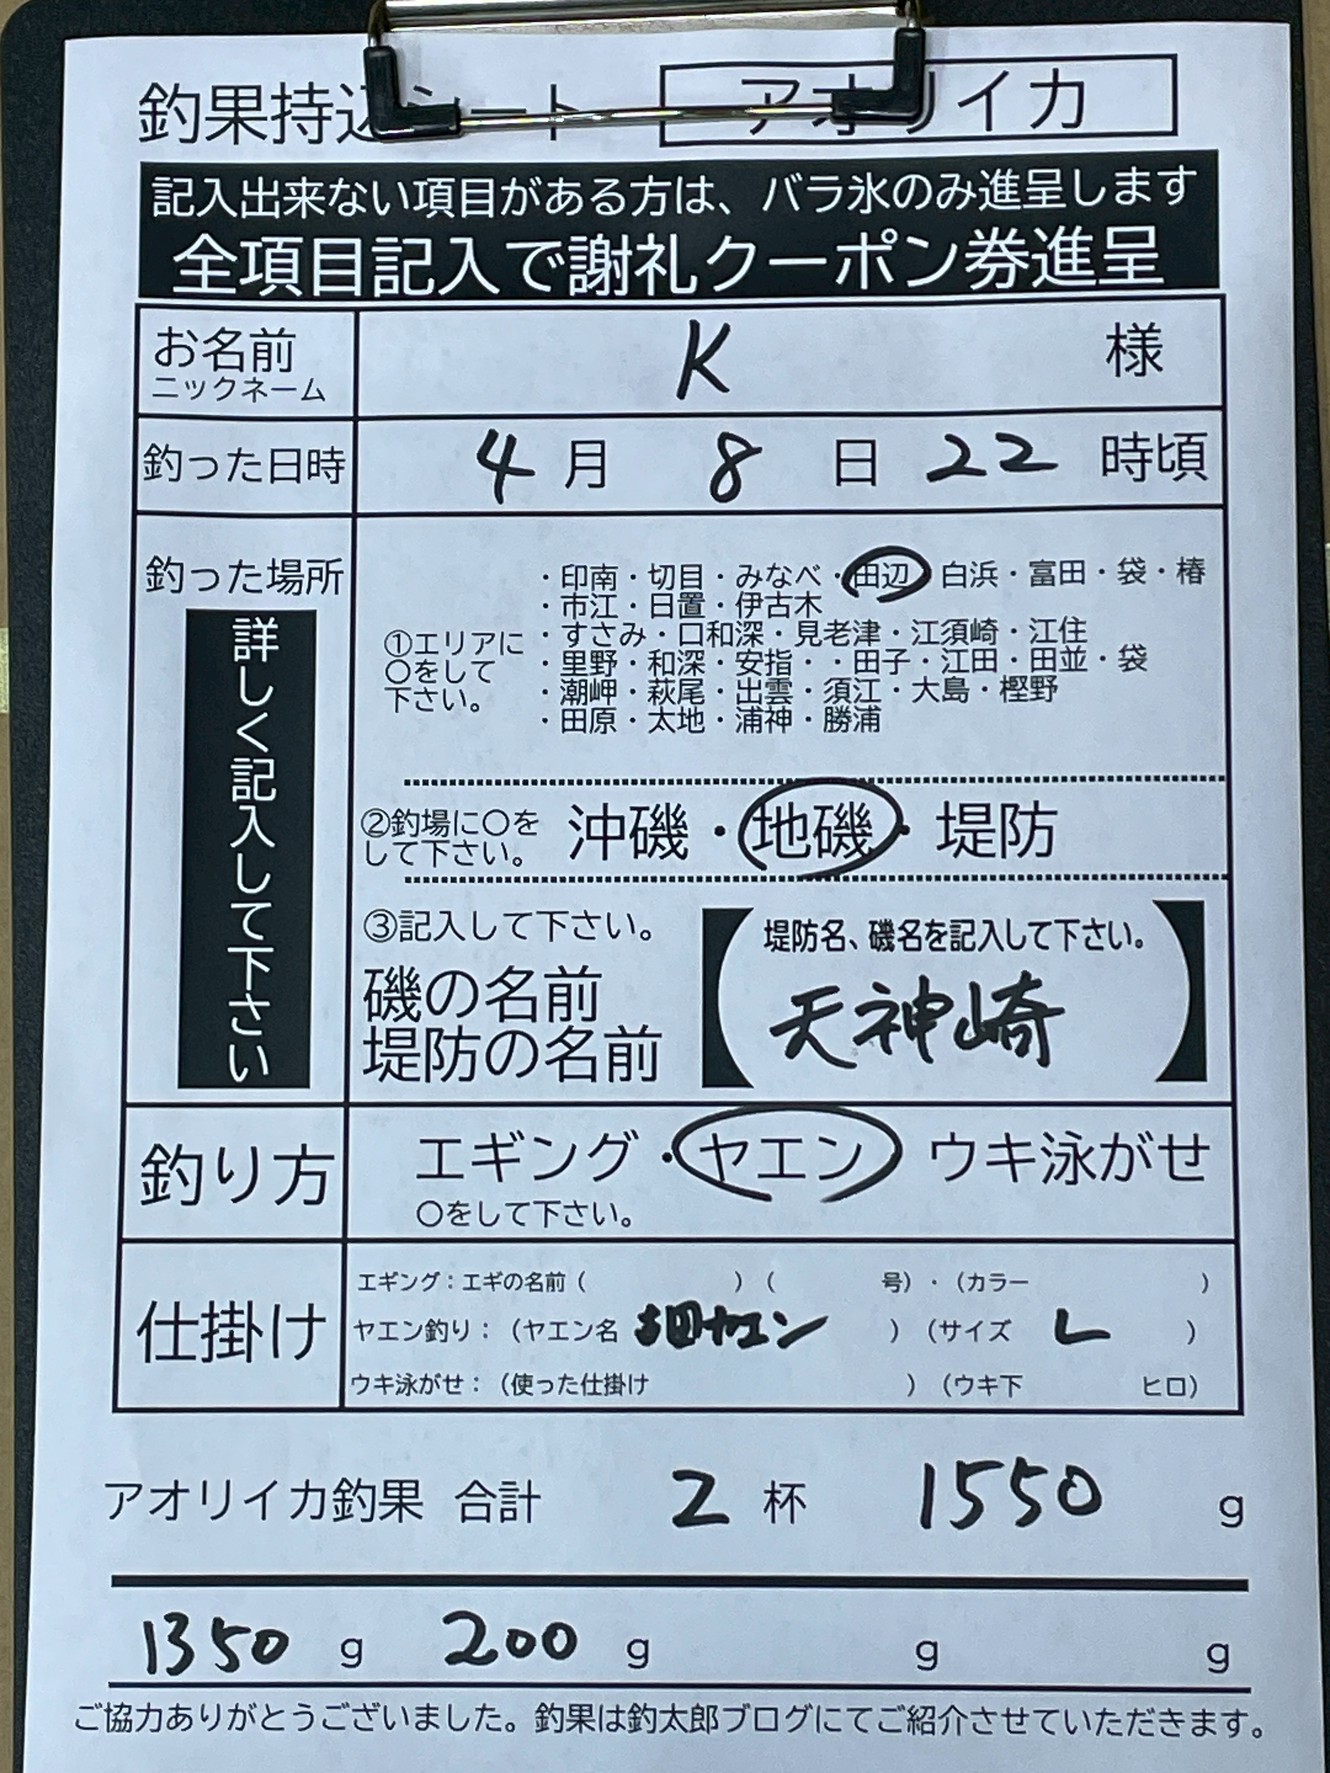 釣果持込シート アオリイカ
記入出来ない項目がある方は、バラ氷のみ進呈します
全項目記入で謝礼クーポン券進呈
お名前 K 様
ニックネーム
釣った日時 4月 8日 22時頃
釣った場所
詳しく記入して下さい
①エリアに
〇をして
下さい。
・印南・切目・みなべ・田辺・白浜・富田・袋・椿
・市江・日置・伊古木
・すさみ・口和深・見老津・江須崎・江住
・里野・和深・安指・・田子・江田・田並・袋
・潮岬・萩尾・出雲・須江・大島・樫野
・田原・太地・浦神・勝浦
②釣場に〇を
して下さい。
沖磯・地磯・堤防
③記入して下さい。
磯の名前
堤防の名前
【堤防名、磯名を記入して下さい。
天神崎】
釣り方 エギング・ヤエン ウキ泳がせ
〇をして下さい。
仕掛け
エギング：エギの名前（ ）（ 号）・（カラー ）
ヤエン釣り：（ヤエン名 ヤエン ）（サイズ L ）
ウキ泳がせ：（使った仕掛け ）（ウキ下 ヒロ）
アオリイカ釣果 合計 2 杯 1550 g
1350 g 200 g g g
ご協力ありがとうございました。釣果は釣太郎ブログにてご紹介させていただきます。